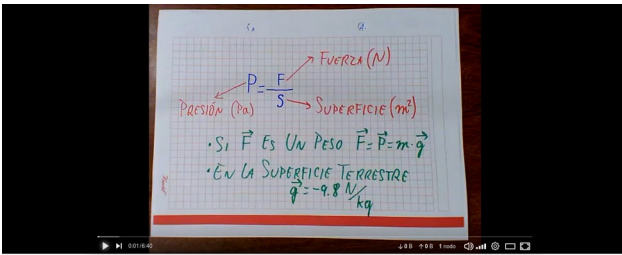 P = F / S
FUERZA (N)
PRESIÓN (Pa)
SUPERFICIE (m²)
• SI F⃗ ES UN PESO F⃗=P⃗=m·g⃗
• EN LA SUPERFICIE TERRESTRE
g⃗ = -9.8 N/kg
0:01/6:40
↓0 B ↑0 B 1 nodo